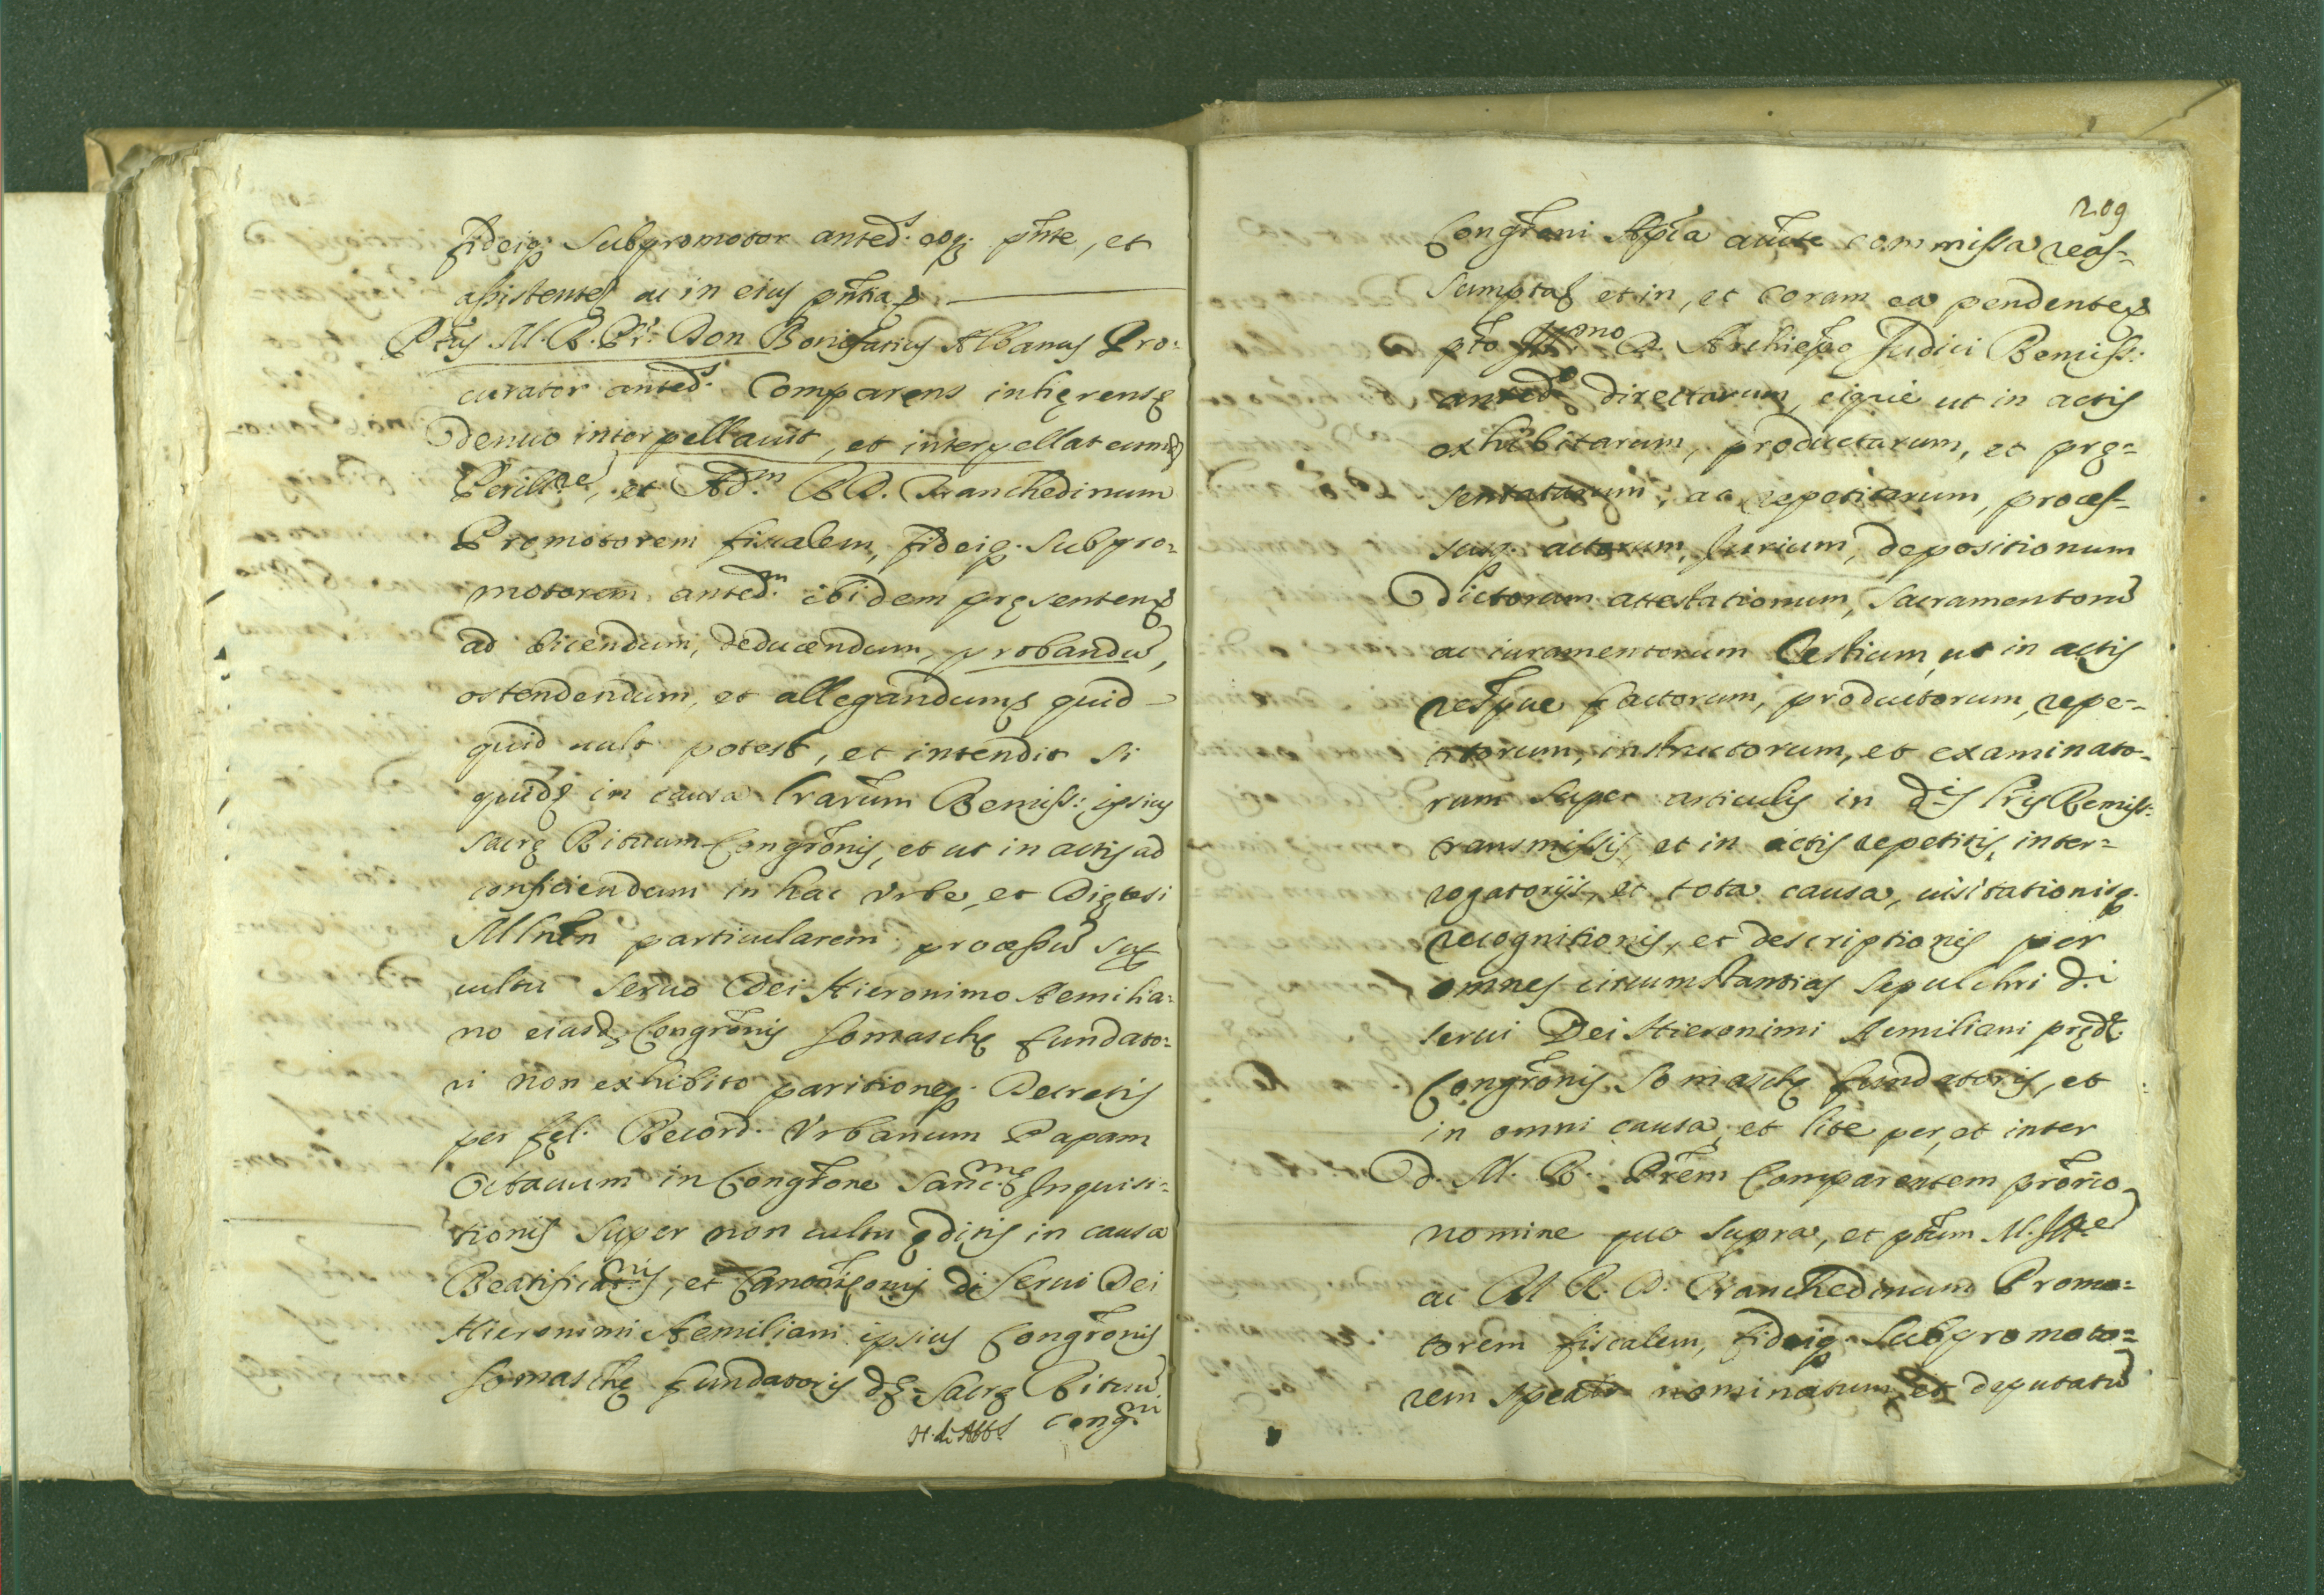 fideiq; Subpromotor anted.s eoq; pñte, et
assistente, ac in eius pñtia
Ptus M. R. Pr. Don Bonifatius Albanus Pro=
curator anted.s Comparens inherens
denuo interpellauit, et interpellat eumd
Perill.re, et Ad.m R. D. Franchedinum
Promotorem fiscalem, fideiq; Subpro=
motorem anted.m ibidem presentem
ad dicendum, deducendum, probandũ,
ostendendum, et allegandum quid
quid uult potest, et intendit si
quid in causa lrarum Remiss: ipsius
sacrę Rituum Congr̃onis, et ut in actis ad
conficiendum in hac Vrbe, et Dięcesi
Mlnĩ particularem processũ sup
cultu Seruo Dei Hieronimo Aemilia=
no eiusd. Congr̃onis Somaschę fundato=
ri non exhibito paritioneq; Decretis
per fęl. Record. Vrbanum Papam
Octauum in Congr̃one Sanc.mę Inquisi=
tionis super non cultu ęditis in causa
Beatificat.nis, et Canoniz̃onis di Serui Dei
Hieronimi Aemiliani ipsius Congr̃onis
Somaschę fundatoris dę Sacrę Rituũ
Cong.ni
209
Congr̃oni Apĩca auc̃te commissa reas=
sumpta, et in, et coram ea pendente
pto R. Archiepõ Judici Remiss:
anted.o directarum, eique ut in actis
exhibitarum, productarum, et prę=
sentatarum, ac repetitarum, proces=
susq; actorum, Jurium, depositionum
Dictorum attestationum, Sacramentorũ
ac iuramentorum Testium, ut in actis
respue factorum, productorum, repe=
titorum, instructorum, et examinato=
rum super articulis in d.is lris Remiss:
transmissis, et in actis repetitis, inter=
rogatorijs, et tota causa, uisitationisq;
recognitionis, et descriptionis per
omnes circumstantias sepulchri d.i
serui Dei Hieronimi Aemiliani pręd.
Congr̃onis Somaschę fundatoris, et
in omni causa, et lite per, et inter
d. M. R. Pr̃em Comparentem pr̃orio
nomine quo supra, et ptum M. Ill.re
ac M R. D. Franchedinum Promo=
torem fiscalem, fideiq; Subpromoto=
rem nominatum, et deputatũ